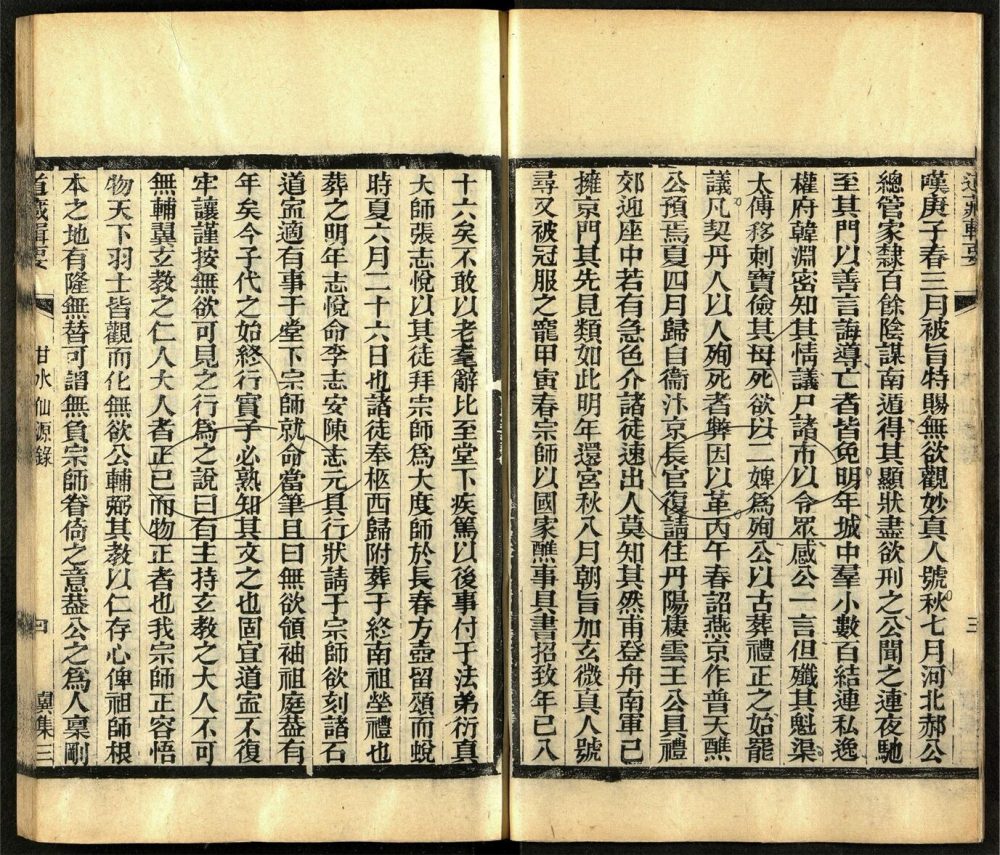 嘆庚子春三月被旨特賜無欲觀妙真人號秋七月河北郝公
總管家隸百餘陰謀南遁得其顯狀盡欲刑之公聞之連夜馳
至其門以善言誨導亡者皆免明年城中羣小數百結連私逸
權府韓淵密知其情議尸諸市以令眾感公一言但殲其魁渠
太傅移剌寶儉其母死欲以二婢為殉公以古葬禮正之始罷
議凡契丹人以人殉死者弊因以革丙午春詔燕京作普天醮
公預焉夏四月歸自衞汴京長官復請住丹陽棲雲王公具禮
郊迎座中若有急色介諸徒速出人莫知其然甫登舟南軍已
擁京門其先見類如此明年還宮秋八月朝旨加玄微真人號
尋又被冠服之寵甲寅春宗師以國家醮事具書招致年已八
三
十六矣不敢以老羣辭比至堂下疾篤以後事付于法弟衍真
大師張志悅以其徒拜宗師為大度師於長春方壺留頌而蛻
時夏六月二十六日也諸徒奉柩西歸附葬于終南祖塋禮也
葬之明年志悅命李志安陳志元具行狀請于宗師欲刻諸石
道寍適有事于堂下宗師就命當筆且曰無欲領袖祖庭葢有
年矣今子代之始終行實子必熟知其文之也固宜道寍不復
牢讓謹按無欲可見之行為之說曰有主持玄教之大人不可
無輔翼立教之仁人大人者正已而物正者也我宗師正容悟
物天下羽士皆觀而化無欲公輔弼其教以仁存心俾祖師根
本之地有隆無替可謂無負宗師眷倚之意葢公之為人稟剛
道藏輯要 甘水仙源錄 四 集三